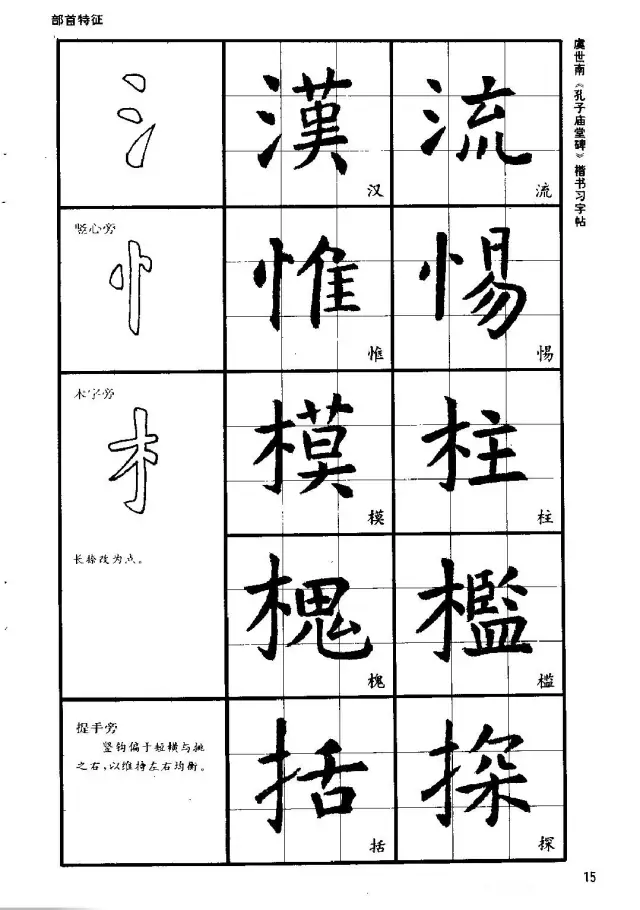 部首特征
虞世南《孔子庙堂碑》楷书习字帖
氵
漢
汉
流
流
竖心旁
忄
惟
惟
惕
惕
木字旁
木
长捺改为点。
模
模
柱
柱
槐
槐
檻
槛
提手旁
竖钩偏于短横与挑
之右，以维持左右均衡。
括
括
探
探
15